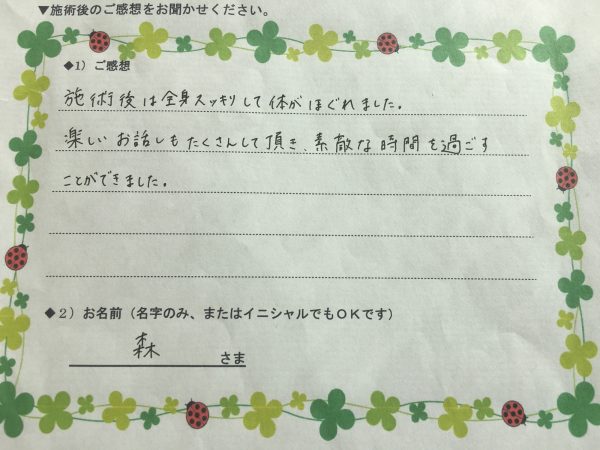 ▼施術後のご感想をお聞かせください。
◆1）ご感想
施術後は全身スッキリして体がほぐれました。
楽しいお話しもたくさんして頂き、素敵な時間を過ごす
ことができました。
◆2）お名前（名字のみ、またはイニシャルでもＯＫです）
森 さま